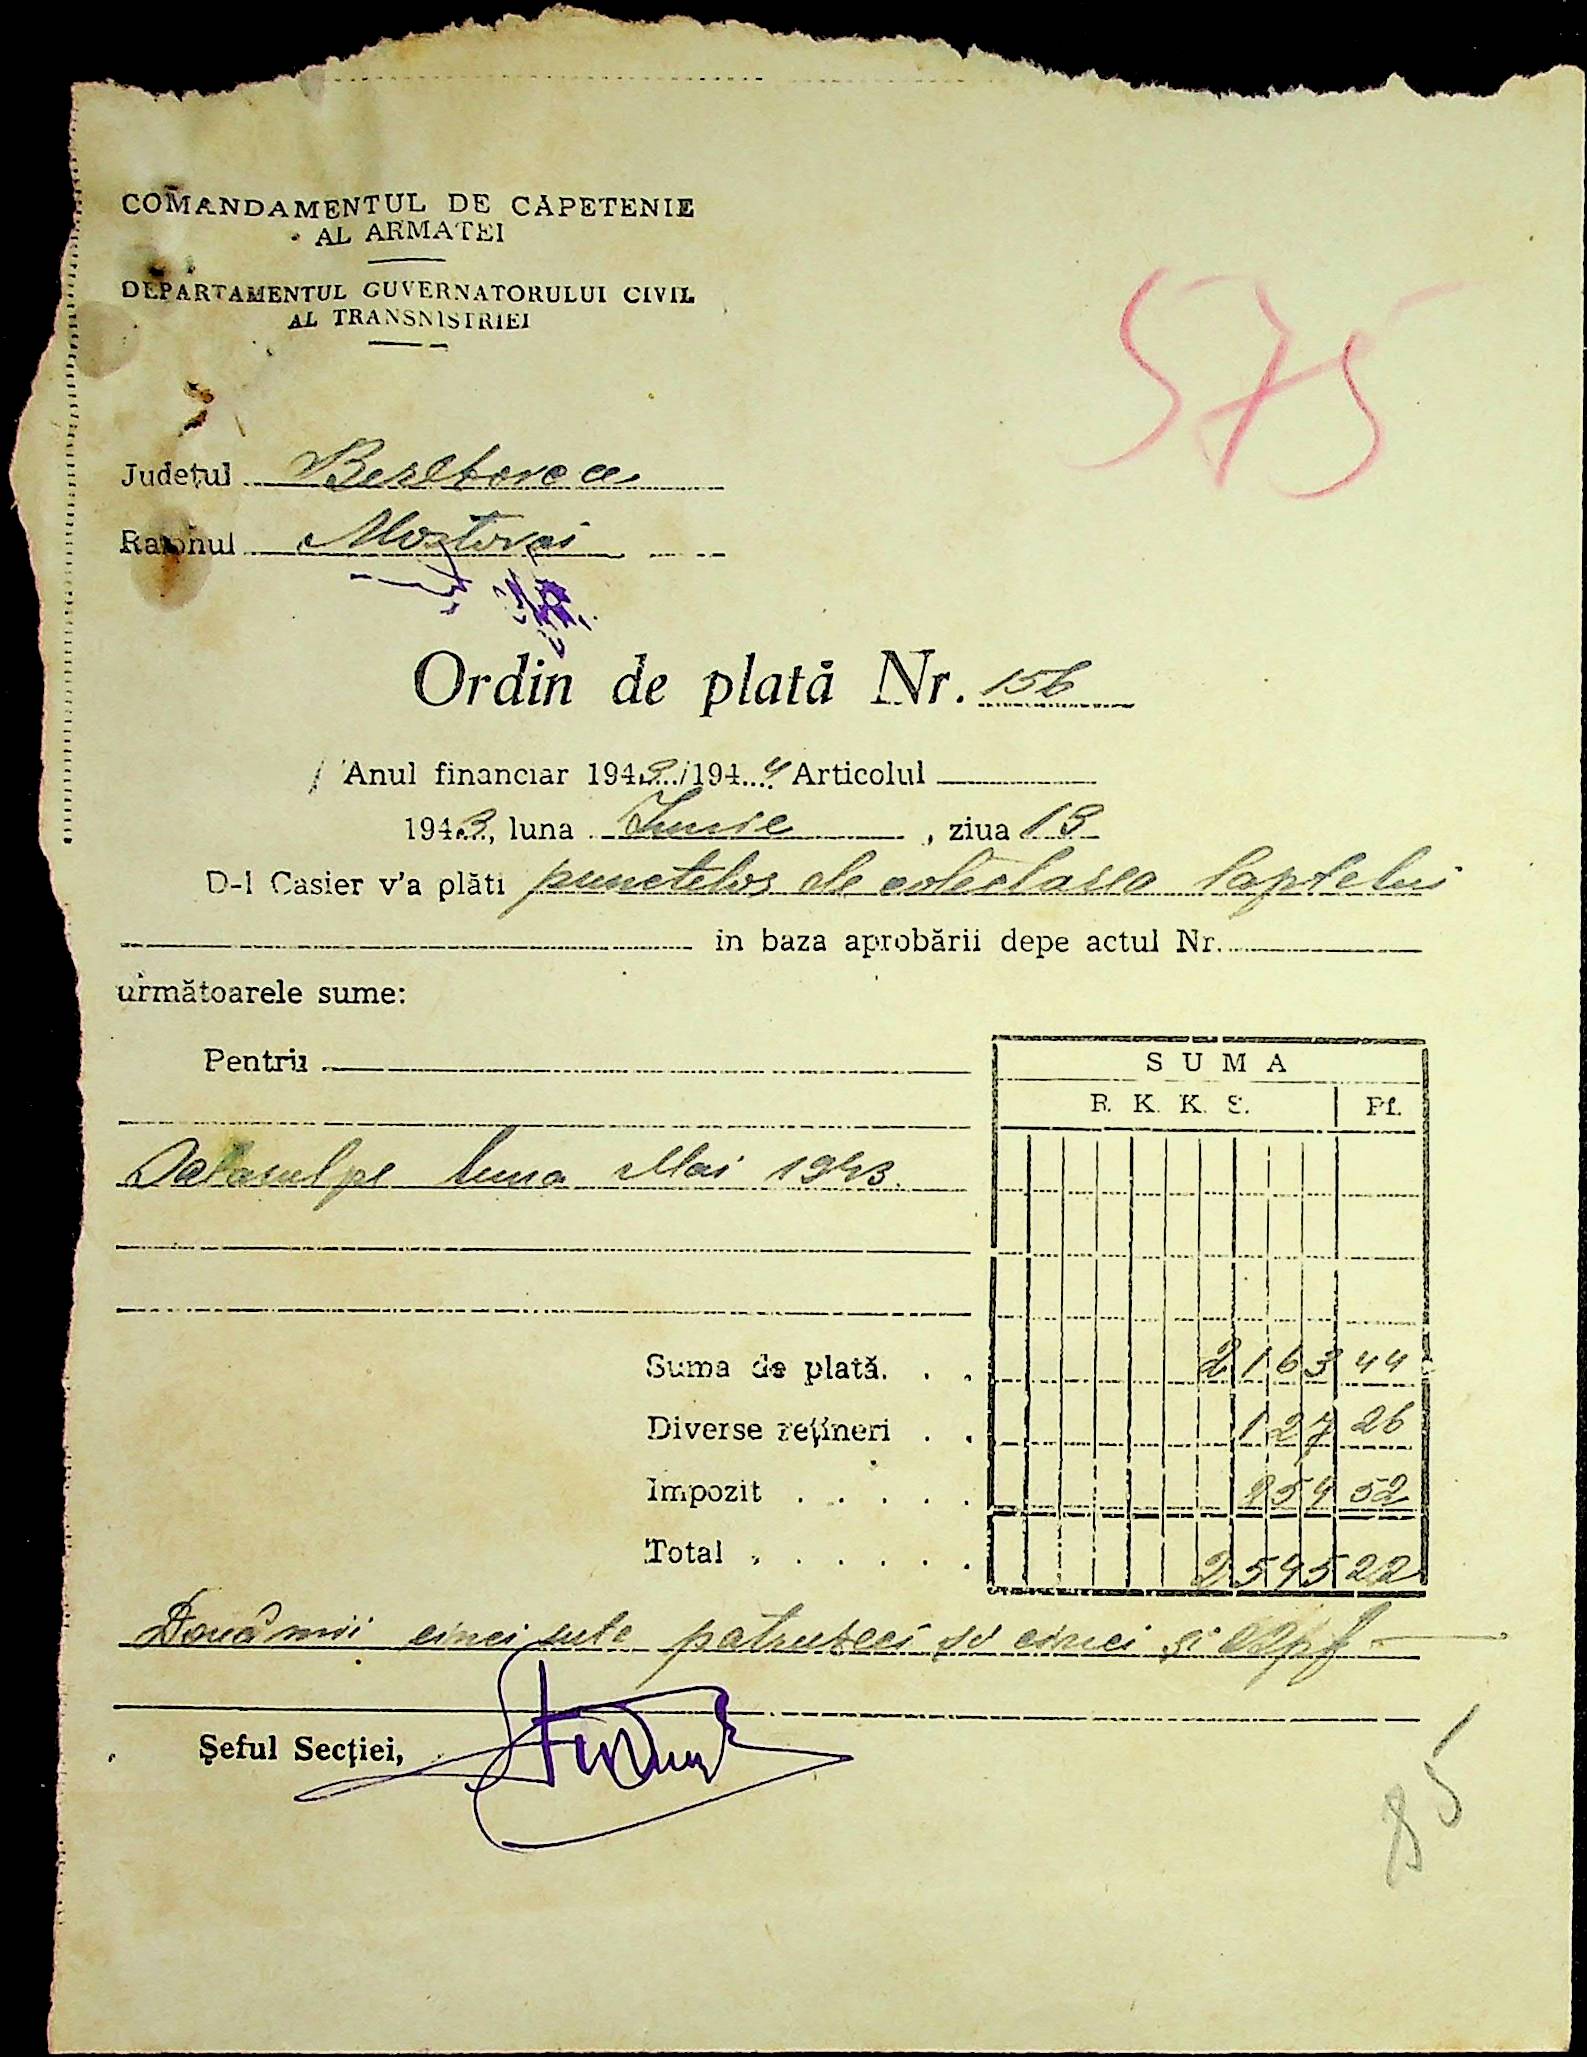 COMANDAMENTUL DE CAPETENIE
AL ARMATEI
DEPARTAMENTUL GUVERNATORULUI CIVIL
AL TRANSNISTRIEI
575
Județul Berezovca
Raionul Mostovoi
Ordin de plată Nr. 156
Anul financiar 1943/1944 Articolul
1943, luna Iunie, ziua 13
D-l Casier v'a plăti punctelor de colectarea laptelui
in baza aprobării depe actul Nr.
următoarele sume:
Pentru
SUMA
R. K. K. S. Pf.
Salariul pe luna Mai 1943.
Suma de plată. . . 2163 44
Diverse rețineri . . 127 26
Impozit . . . . . 254 52
Total . . . . . . 2545 22
Două mii cinci sute patruzeci și cinci și 22 pf
Șeful Secției,
85